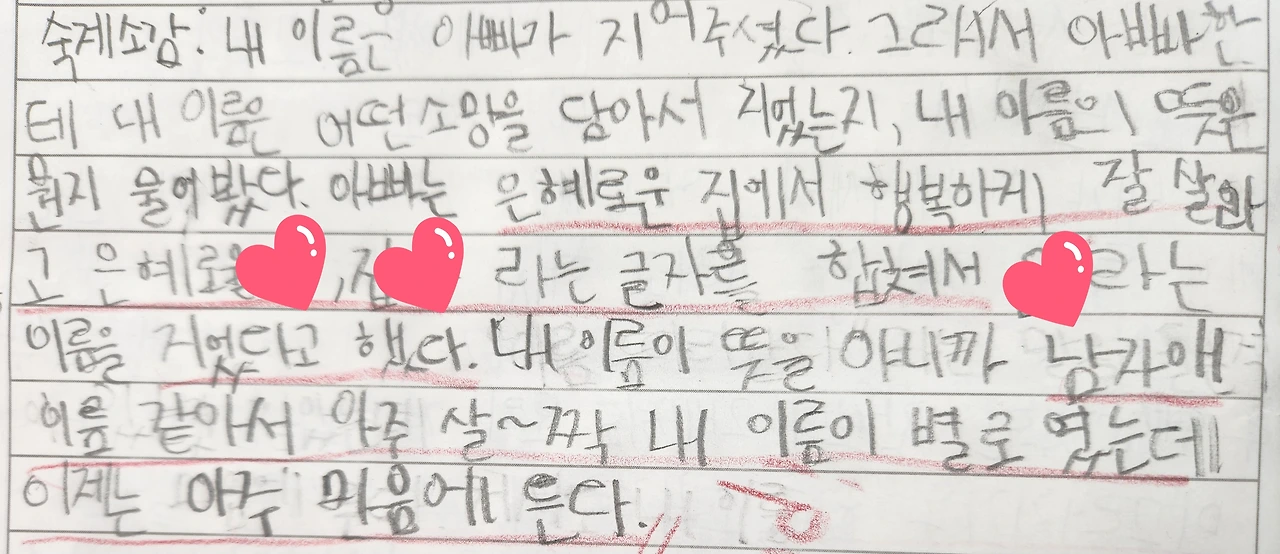 숙제소감. 내 이름은 아빠가 지어주셨다. 그래서 아빠한
테 내 이름은 어떤소망을 담아서 지었는지, 내 이름의 뜻은
뭔지 물어봤다. 아빠는 은혜로운 집에서 행복하게 잘 살라
고 은혜로울 , 라는 글자를 합쳐서 라는
이름을 지었다고 했다. 내 이름이 뜻을 아니까 남자애
이름 같아서 아주 살~짝 내 이름이 별로 였는데
이제는 아주 마음에 든다.